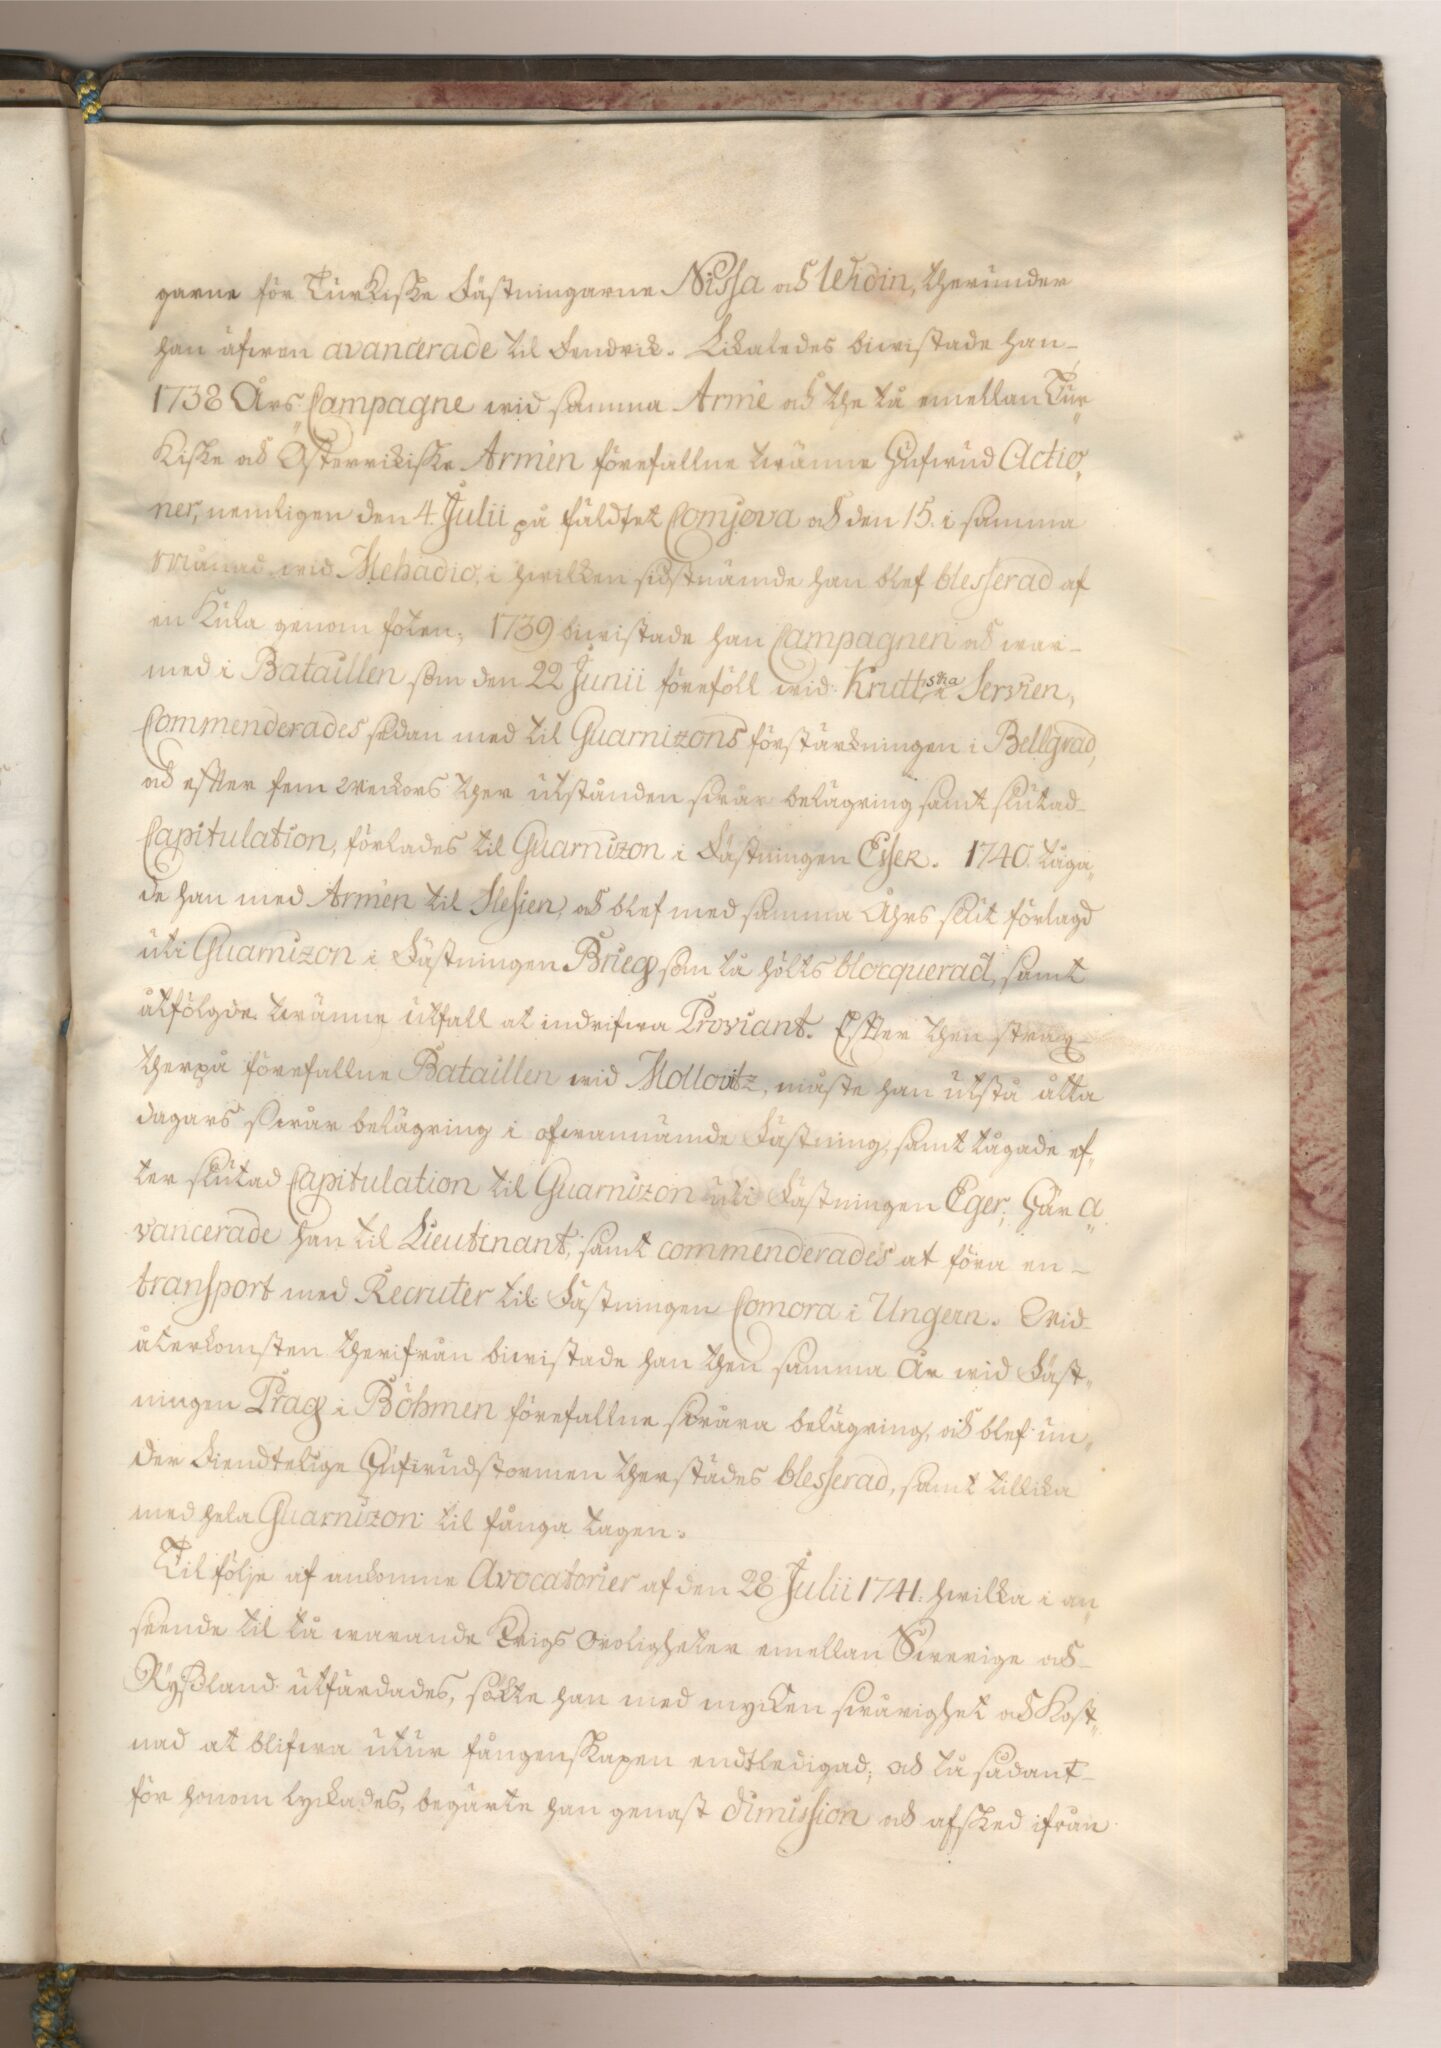 garne för Turkiske Fästningarne Nissa och Uhdin, therunder
han äfwen avancerade til Fendrik. Likaledes biwistade han
1738 Års Campagne wid samma Armé och the tå emellan Tur„
kiske och Österrikiske Armén förefallne twänne Hufwud Actio„
ner, nemligen den 4. Julii på fäldtet Comjova och den 15. i samma
Månad wid Mehadio, i hwilken sidstnämde han blef blesserad af
en Kula genom foten; 1739 biwistade han Campagnen och war
med i Bataillen som den 22 Junii föreföll wid Kruttska i Servien,
Commenderades sedan med til Guarnizons förstärkningen i Bellgrad,
och efter fem Weckors ther utstånden swår belägring samt slutad
Capitulation, förlades til Guarnizon i Fästningen Essek. 1740. tåga„
de han med Armén til Slesien, och blef med samma Åhrs slut förlagd
uti Guarnizon i Fästningen Brieg som tå hölts blocquerad, samt
åtfölgde twänne utfall at indrifwa Proviant. Efter then strax
therpå förefallne Bataillen wid Mollovitz, måste han utstå åtta
dagars swår belägring i ofwannämde Fästning, samt tågade ef„
ter slutad Capitulation til Guarnizon uti Fästningen Eger; Här a„
vancerade han til Lieutenant, samt commenderades at föra en
transport med Recruter til Fästningen Comora i Ungern. Wid
återkomsten therifrån biwistade han then samma År wid Fäst„
ningen Prag i Böhmen förefallne swåra belägring, och blef un„
der fiendtelige Hufwudstormen therstädes blesserad, samt tillika
med hela Guarnizon til fånga tagen.
Til följe af ankomne Avocatorier af den 28 Julii 1741. hwilka i an„
seende til tå warande Krigs Oroligheter emellan Swerige och
Ryßland utfärdades, sökte han med mycken swårighet och Kost„
nad at blifwa utur fångenskapen endtledigad; och tå sådant
för honom lyckades, begärte han genast dimission och afsked ifrån